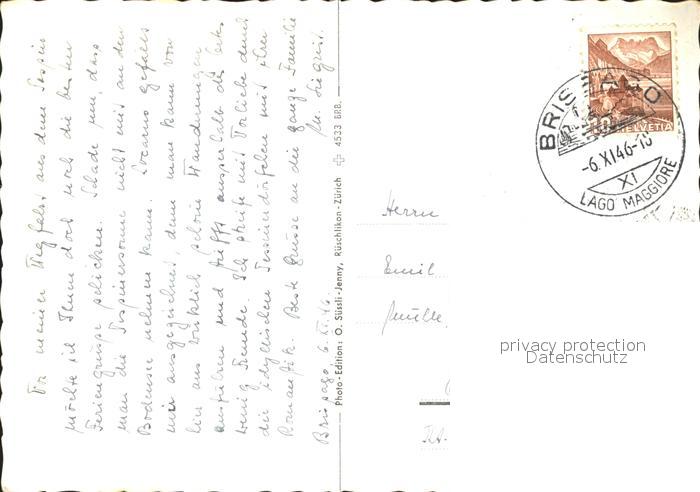 Vor meiner Wegfahrt aus dem Tessin
möchte ich Ihnen doch noch die besten
Feriengrüsse schicken. Schade nur, dass
man die Tessinersonne nicht mit an den
Bodensee nehmen kann. Locarno gefällt
mir ausgezeichnet, denn man kann von
hier aus wirklich schöne Wanderungen
ausführen und trifft ausserhalb des
wenig Fremde. Ich streife mit Vorliebe durch
die idyllischen Tessinerdörfchen mit ihrer
Romantik. Beste Grüsse an die ganze Familie
Brissago, 6. XI. 46.
Photo-Edition: O. Süssli-Jenny, Rüschlikon-Zürich 4533 BRB.
HELVETIA
BRISSAGO
-6.XI.46-
XI
LAGO MAGGIORE
Herrn
Emil
privacy protection
Datenschutz